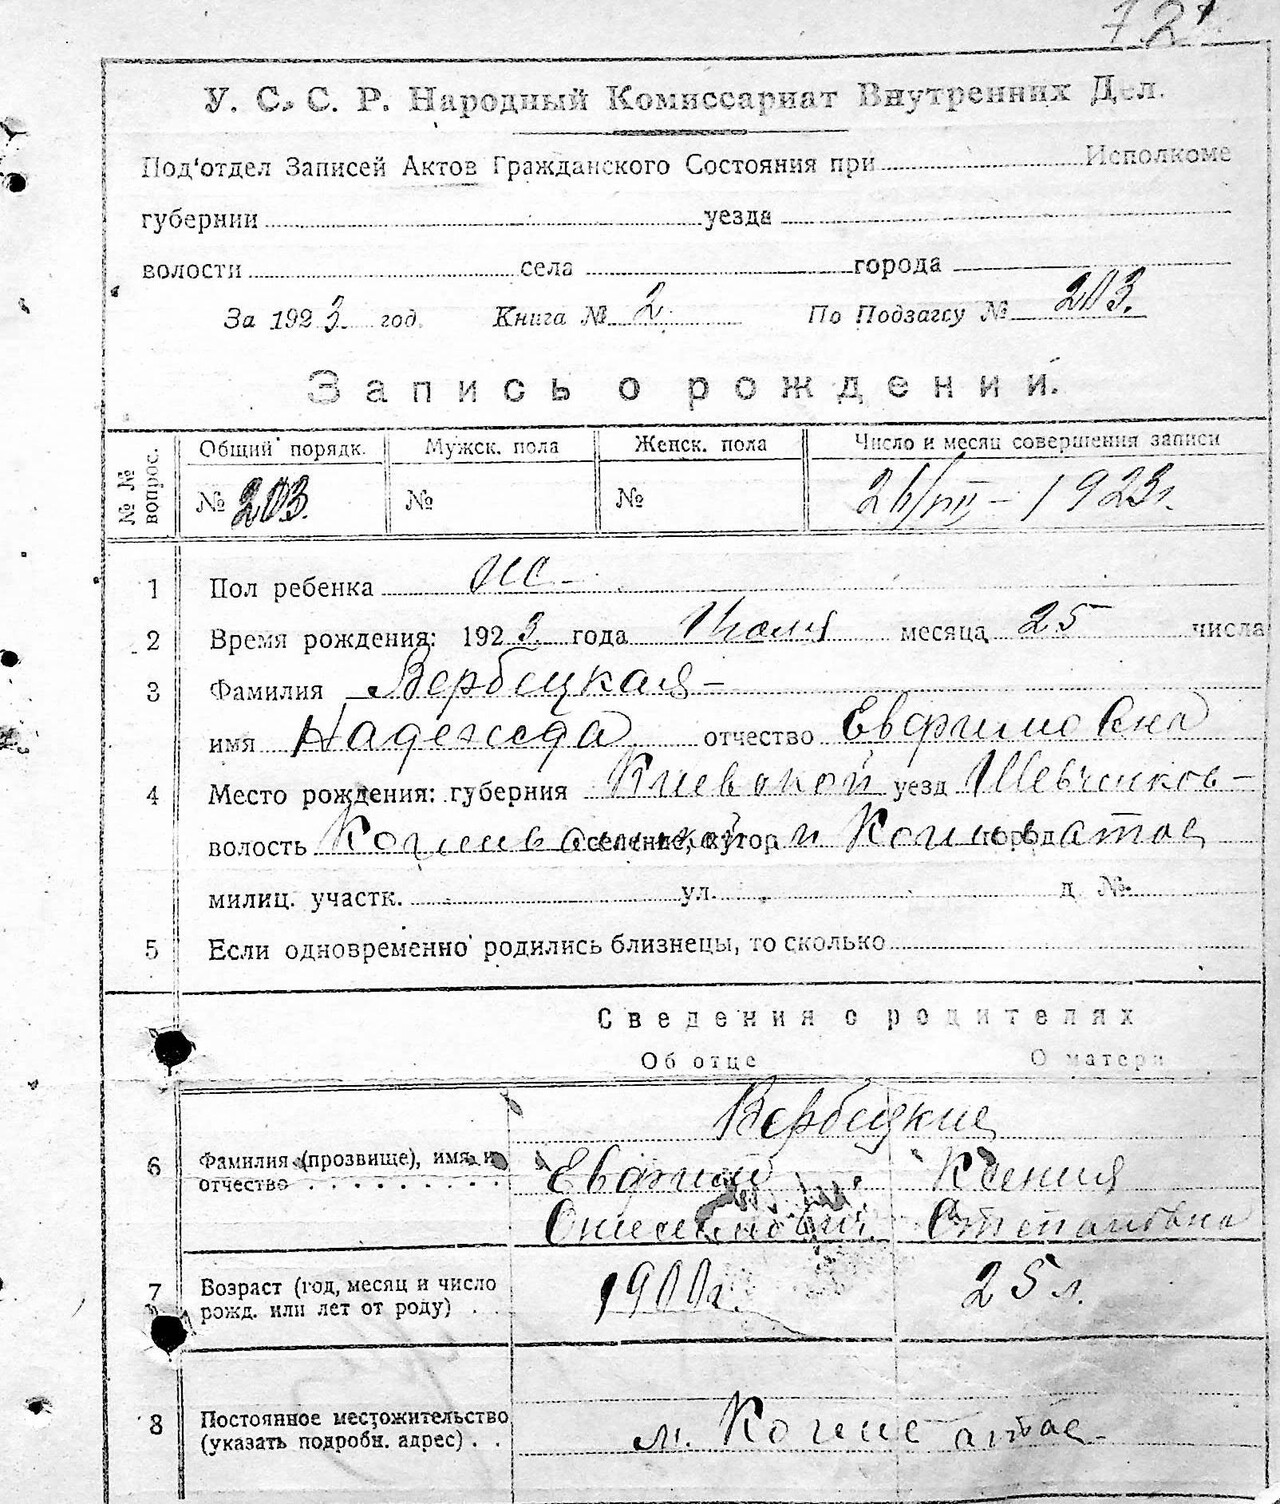 72
У. С. С. Р. Народный Комиссариат Внутренних Дел.
Под'отдел Записей Актов Гражданского Состояния при Исполкоме
губернии уезда
волости села города
За 1923 год. Книга № 2 По Подзагсу № 203.
Запись о рождении.
№ № вопрос. Общий порядк. Мужск. пола Женск. пола Число и месяц совершения записи
№ 203. № № 26/VII – 1923г.
1 Пол ребенка
2 Время рождения: 1923 года Июля месяца 25 числа
3 Фамилия Вербецкая –
имя Надежда отчество Евфимовна
4 Место рождения: губерния Киевской уезд Шевченков –
волость селение, хутор м Кошеватое город
милиц. участк. ул. д. №
5 Если одновременно родились близнецы, то сколько
Сведения о родителях
Об отце О матери
Вербецкие
6 Фамилия (прозвище), имя и Евфимий Ксения
отчество . . . . . . . . . Онисимович Степановна
7 Возраст (год, месяц и число 1900г. 25 л.
рожд. или лет от роду) . .
8 Постоянное местожительство м. Кошеватое
(указать подробн. адрес) . .